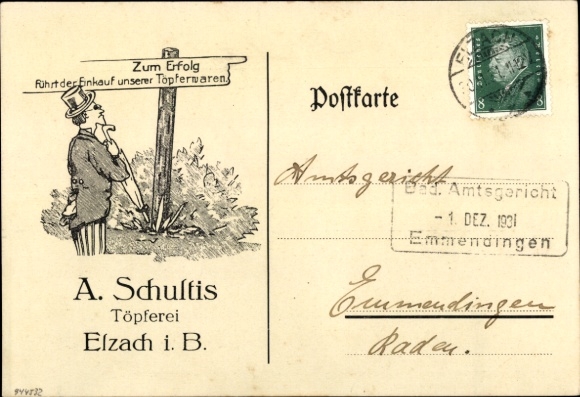 Zum Erfolg
Führt der Einkauf unserer Töpferwaren
A. Schultis
Töpferei
Elzach i. B.
Postkarte
8 8
Amtsgericht
Bad. Amtsgericht
- 1. DEZ. 1931
Emmendingen
Emmendingen
Baden.
944532